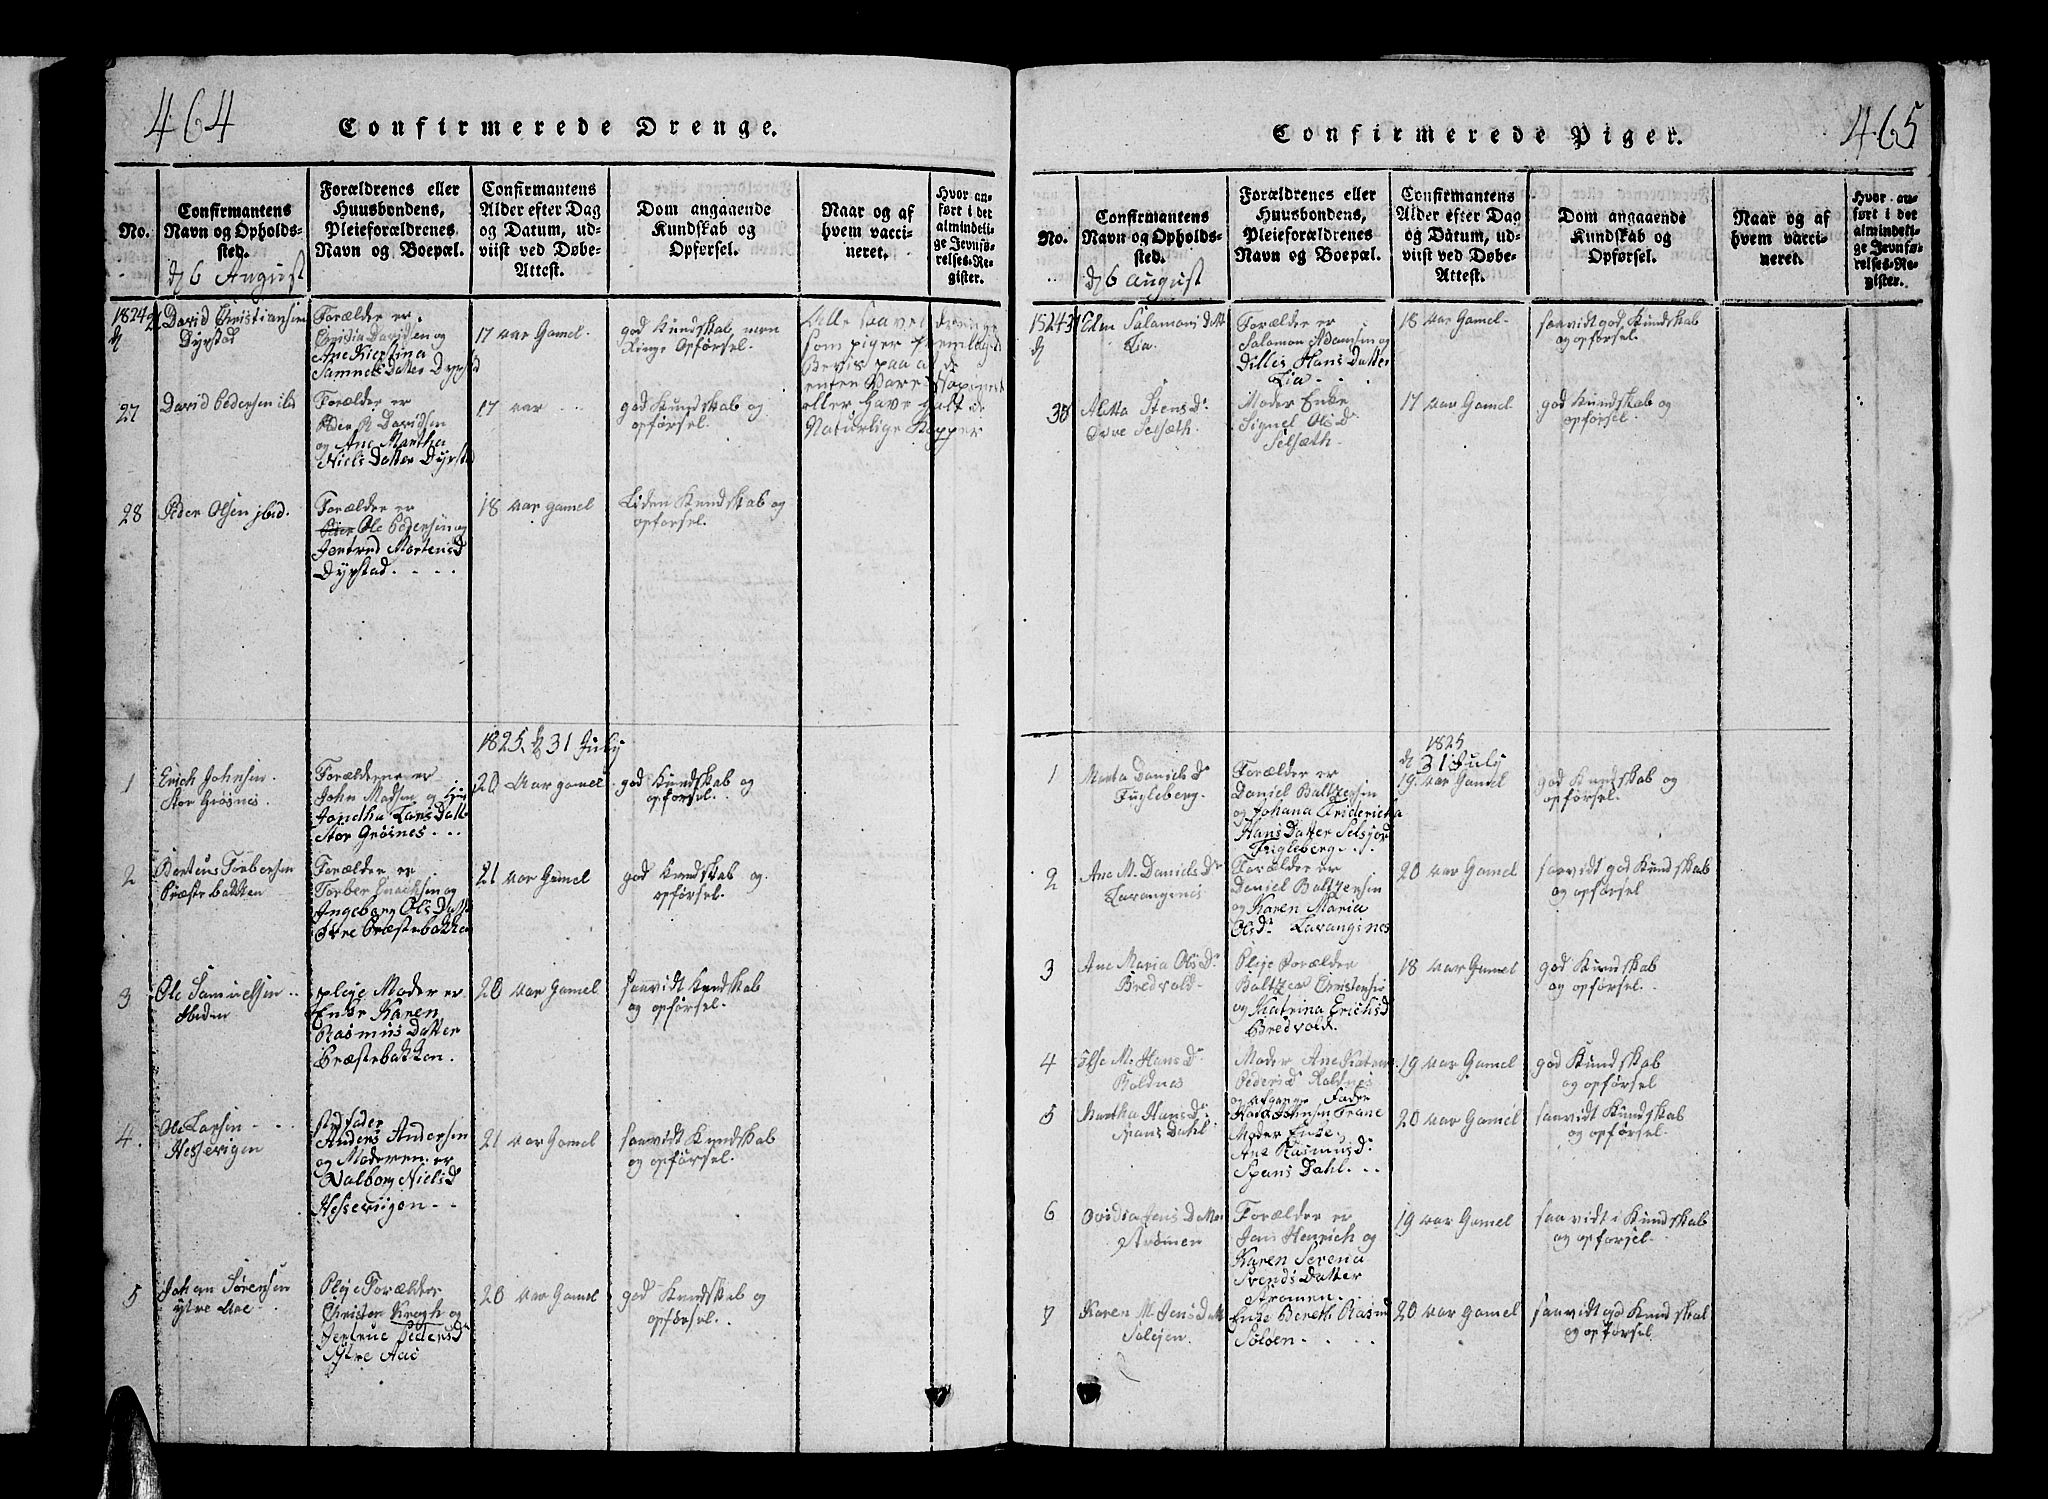 464
Confirmerede Drenge.
No.
Confirmantens
Navn og Opholds-
sted.
Forældrenes eller
Huusbondens,
Pleieforældrenes
Navn og Boepæl.
Confirmantens
Alder efter Dag
og Datum, ud-
viist ved Døbe-
Attest.
Dom angaaende
Kundskab og
Opførsel.
Naar og af
hvem vacci-
neret.
Hvor an-
ført i det
almindeli-
ge Jevnfø-
relses-Re-
gister.
d 6 August
1824
David Christiansen
Dyrstad
Forælder er
Davidsen og
Ane Kierstina
Samuels Datter Dyrstad
17 aar Gamel.
god Kundskab, men
Ringe Opførsel.
Alle saavel drenge
som piger fremlagde
Bevis paa at de
enten Vare
eller have halt de
Naturlige Kopper
27
David Pedersen ibd
Forælder er
Peder R Davidsen
og Ane Martha
Niels Datter Dyrstad
17 aar
god Kundskab og
opførsel.
28
Peder Olsen jbid.
Forælder er
Ole Pedersen og
Jertrud Mortensd
Dyrstad. . . .
18 aar gamel
Liden Kundskab og
opførsel.
1825. d 31 July
1
Erich Johnsen.
Stor Grøsnes.
Forælderne er
John Madsen og
Lars Datt
Stor Grøsnes . . .
20 Aar gamel.
god Kundskab og
opførsel.
2
Berteus Torbersen
Præstebakken
Forælder er
Torber Enochsen og
Ingeborg Ols Datt
Præstebakken
21 aar Gamel
god Kundskab og
opførsel.
3
Ole Samuelsen
pleje Moder er
Enke Karen
Rasmus Datter
Præstebakken.
20 aar Gamel
saavidt Kundskab
og opførsel.
4.
Ole Larsen
Hessevigen
stifader
Anders Andersen
og Moderen er
Valborg Nielsd
Hesseviigen - -
21 aar Gamel
saavidt Kundskab
og opførsel.
5
Johan Sørensen
ytre Aae
Pleje Forælder
Christen Krogh og
Jertrue Pedersd
Ytre Aae
20 aar Gamel
god Kundskab og
opførsel.
465
Confirmerede Piger.
No.
Confirmantens
Navn og Opholds-
sted.
Forældrenes eller
Huusbondens,
Pleieforældrenes
Navn og Boepæl.
Confirmantens
Alder efter Dag
og Datum, ud-
viist ved Døbe-
Attest.
Dom angaaende
Kundskab og
Opførsel.
Naar og af
hvem vacci-
neret.
Hvor an-
ført i det
almindeli-
ge Jevnfø-
relses-Re-
gister.
d 6 august
1824
Elen Salamons datt
Lia.
Forælder er
Salomon Adamsen og
Hans Datter
Lia . . .
18 Aar Gamel.
saavidt god Kundskab
og opførsel.
38
Aletta Stens D.
Selsæth.
Moder Enke
Signel Ols D
Selsæth.
17 Aar Gamel
god Kundskab og
opførsel.
1825
d 31 July
1
Marta Daniels D
Fugleberg.
Forælder er
Daniel Baltzersen
og Johana Friderickha
Hans Datter
Fugleberg. . .
19. aar Gamel
god Kundskab og
opførsel.
2
Ane M. Daniels D
Lavangsnes
Forælder er
Daniel Baltzersen
og Karen Maria
Olsd. Lavangsnes
20 aar Gamel
saavidt god Kundskab
og opførsel.
3
Ane Maria Ols D.
Bredvold.
Pleje Forælder
Baltzer Christensen
og Katrina Erichsd
Bredvold.
18 aar Gamel
god Kundskab
og opførsel.
4
Else M. Hans D.
Roldnes
Moder Ane
Pedersd. Roldnes
19 aar Gamel
god Kundskab
og opførsel
5
Martha Hans D.
Spans Dahl.
og afgangne Fader
Hans Johnsen
Moder Enke.
Ane Rasmusd.
Spans Dahl. . .
20 aar Gamel
saavidt Kundskab
og opførsel.
6
Ovidia Jens Datter
Strømen
Forælder er
Jens Henrich og
Karen Serena
Svends Datter
Strømen.
19 aar Gamel
saavidt i Kundskab
og opførsel.
7
Karen M. Jens Datt
Enke Bereth
Søløen . . .
20 aar Gamel
saavidt god Kundskab
og opførsel